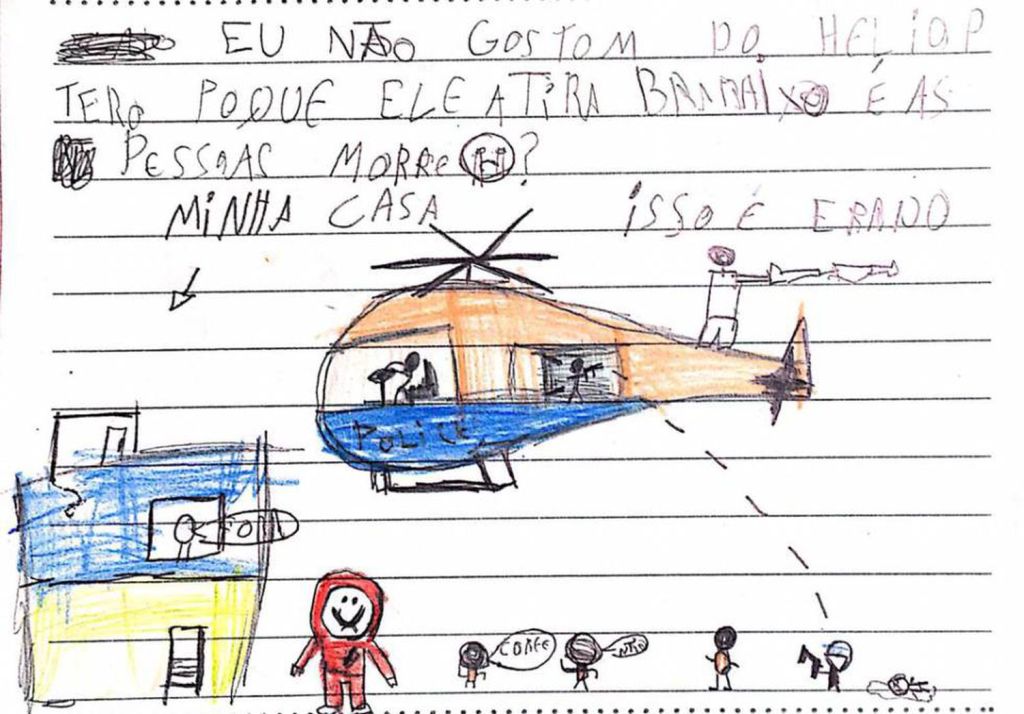 EU NÃO GOSTOM DO HELIOP
TERO POQUE ELE ATIRA BRABAIXO É AS
PESSOAS MORRE ?
MINHA CASA
ISSO É ERADO
POLICE
FORA
CORRE
NÃO